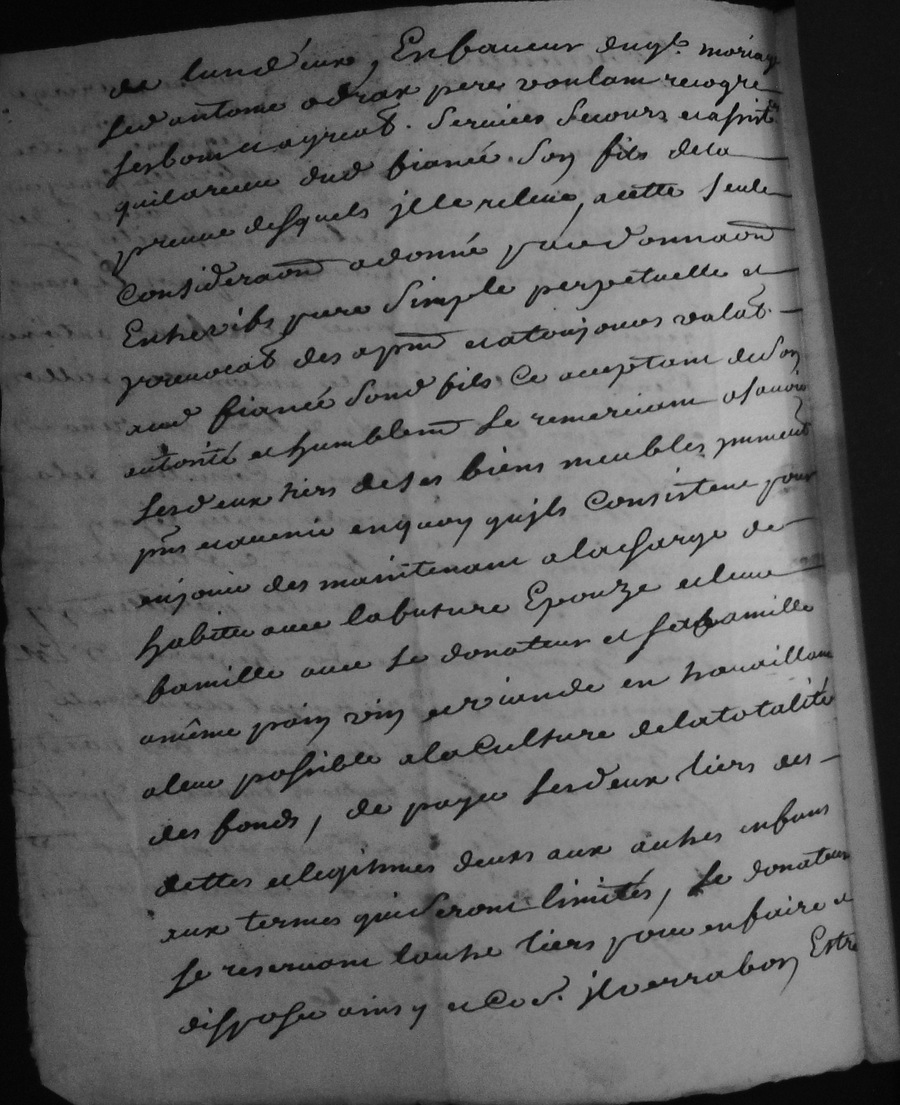 de lund'eux, En faveur dud.t mariage
led antoine adrax pere voulant recogre
les bons et agreab. services secours et assist.
quil a receu dud fiancé son fils de la
preuve desquels jl le releve, a cette seule
Consideraon a donné par donnaon
Entrevifs pure simple perpetuelle et
jrrevocab des apnt et a toujours valab. -
aud fiancé sond fils Ce acceptant de son
autorité et humblemt le remerciant a savoir
les deux tiers de ses biens meubles jmmeub
pns et avenir en quoy quils Consistent pour
en jouir des maintenant a la charge de
habiter avec la future Epouze et leur
famille avec le donateur et sa famille
a même pain vin et viande en travaillant
a leur possible a la Culture de la totalité
des fonds, de payer les deux tiers des -
dettes et legitimes deues aux autres enfans
aux termes qui seront limités, le donateur
se reservant lautre tiers pour en faire et
disposer ainsy et Co d. jl verra bon Estre